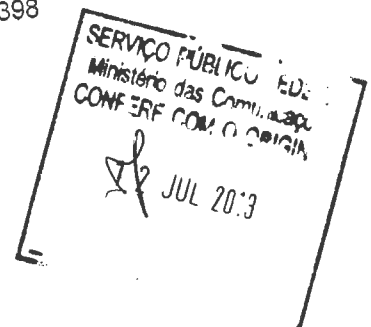 398
SERVIÇO PÚBLICO FEDE
Ministério das Comunicaçõ
CONFERE COM O ORIGIN
JUL 2013